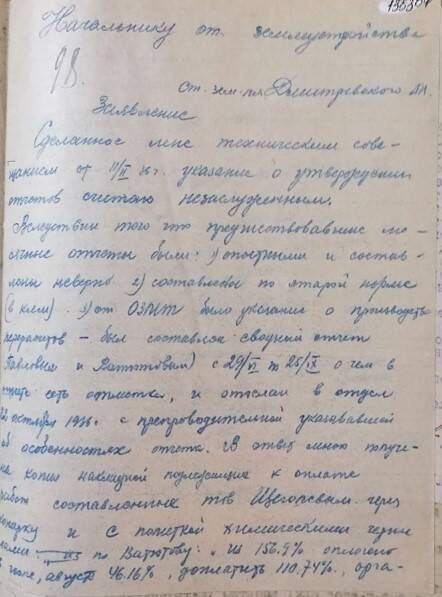 138804
Начальнику от. землеустройства
98.
ст. зем-ля Дмитревского А.И.
Заявление
Сделанное мне техническим сове-
щанием от 11/II 36г. указание о утверждении
отчетов считаю незаслуженным.
Вследствии того что предшествовавшие ме-
сячные отчеты были: 1) и состав-
лены неверно 2) составлено по старой норме
(в клм). 3) от было указание о производстве
– был составлен сводный отчет
Павловым и Ватутовым) с 29/VI по 25/IX о чем в
есть отметка, и отослан в отдел
октября 1936. с препроводительной указавшей
об особенностях отчета. В ответ мною получе-
на копия накладной подлежащие к оплате
работ составленных тов Щегоревым через
и с пометкой химическими черни-
лами по Ватутову: „Из 156.9% оплачено
, август 46.16%, доплатить 110.74%, орга-